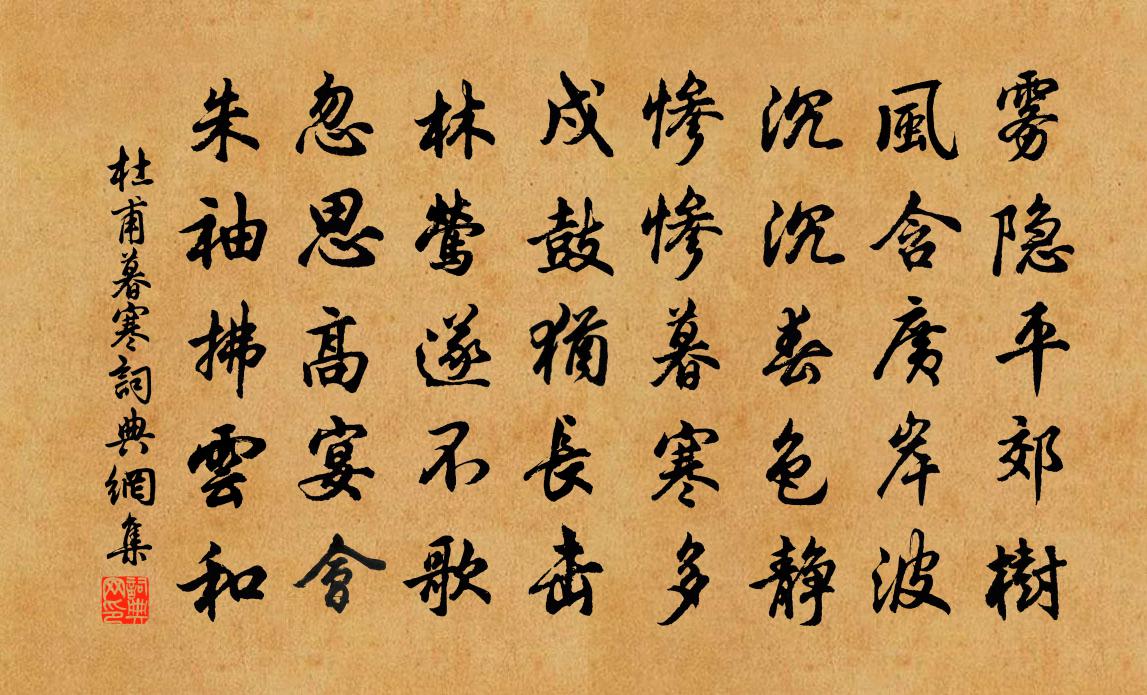 雾隐平郊樹
風含廣岸波
沉沉春色静
慘慘暮寒多
戍鼓猶長击
林鶯遂不歌
忽思高宴會
朱袖拂雲和
杜甫暮寒詞典網集
詞典网印